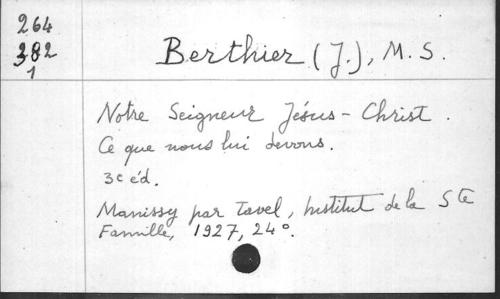 264
382
1
Berthier (J.), M. S.
Notre Seigneur Jésus-Christ.
Ce que nous lui devons.
3e éd.
Manissy par Tavel, Institut de la Ste
Famille, 1927, 24°.